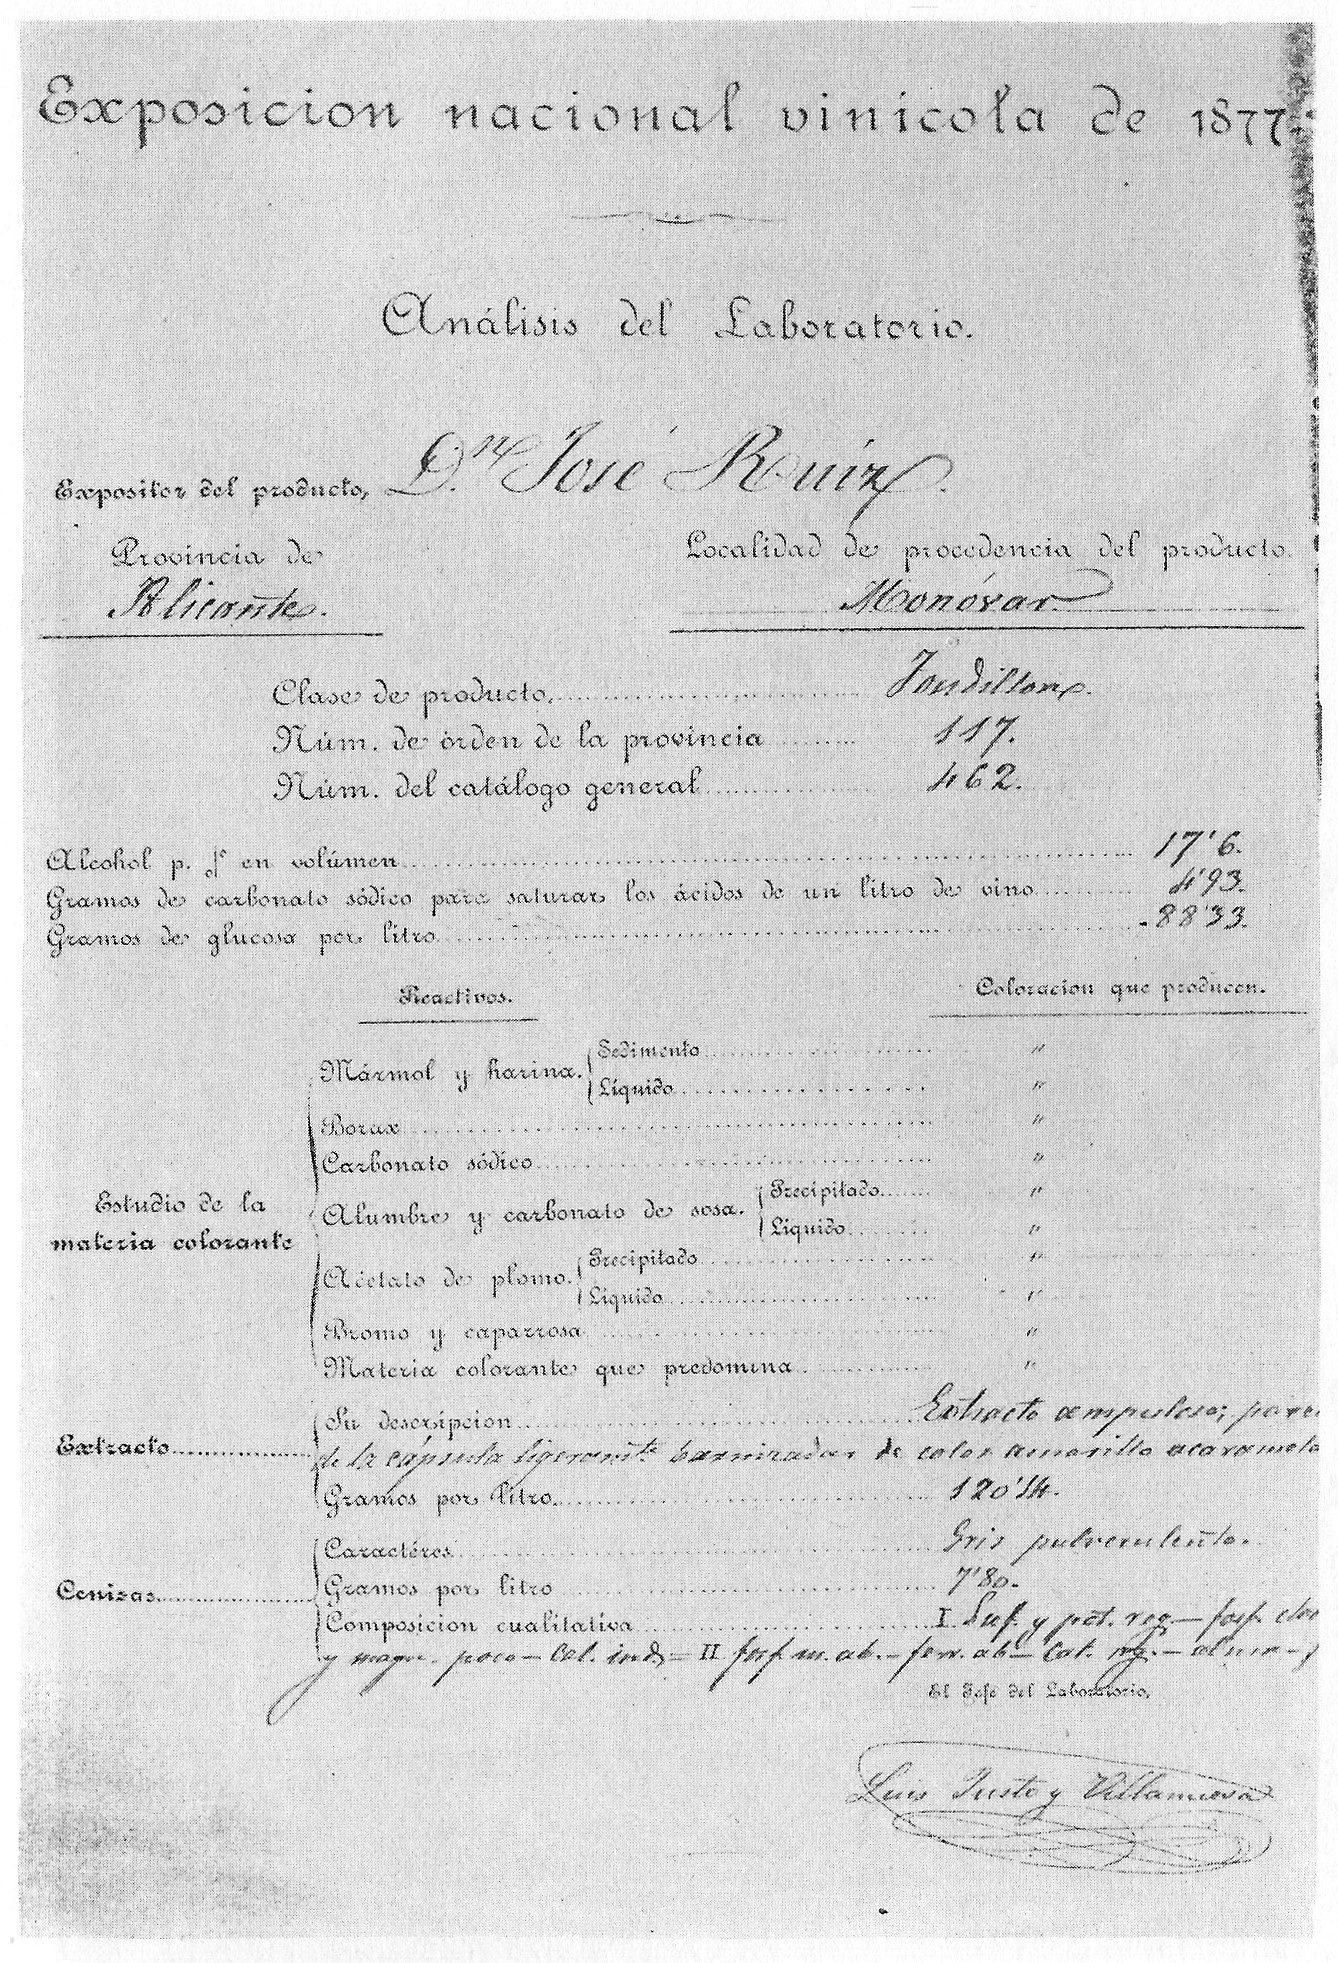 Exposicion nacional vinícola de 1877.
Análisis del Laboratorio.
Expositor del producto, D.n José Ruiz.
Provincia de
Alicante.
Localidad de procedencia del producto.
Monóvar.
Clase de producto, Fondillon.
Núm. de órden de la provincia 117.
Núm. del catálogo general 462.
Alcohol p. % en volúmen 17'6.
Gramos de carbonato sódico para saturar los ácidos de un litro de vino 4'93.
Gramos de glucosa por litro 88'33.
Reactivos. Coloracion que producen.
Estudio de la materia colorante
Mármol y harina. Sedimento "
Líquido "
Borax "
Carbonato sódico "
Alumbre y carbonato de sosa. Precipitado "
Líquido "
Acetato de plomo. Precipitado "
Líquido "
Bromo y caparrosa "
Materia colorante que predomina "
Extracto
Su descripcion Extracto ampuloso; pare
de la cápsula ligeramte barnizadas de color amarillo acaramela
Gramos por litro 120'14.
Cenizas
Caractéres Gris pulverulento.
Gramos por litro 7'80.
Composicion cualitativa I Sulf. y pot. reg. — fosf. clo
y magn. poco — Cal. ind = II fosf. m. ab. — ferr. ab — Cal. rg. — alum —
El Jefe del Laboratorio,
Luis Justo y Villanueva